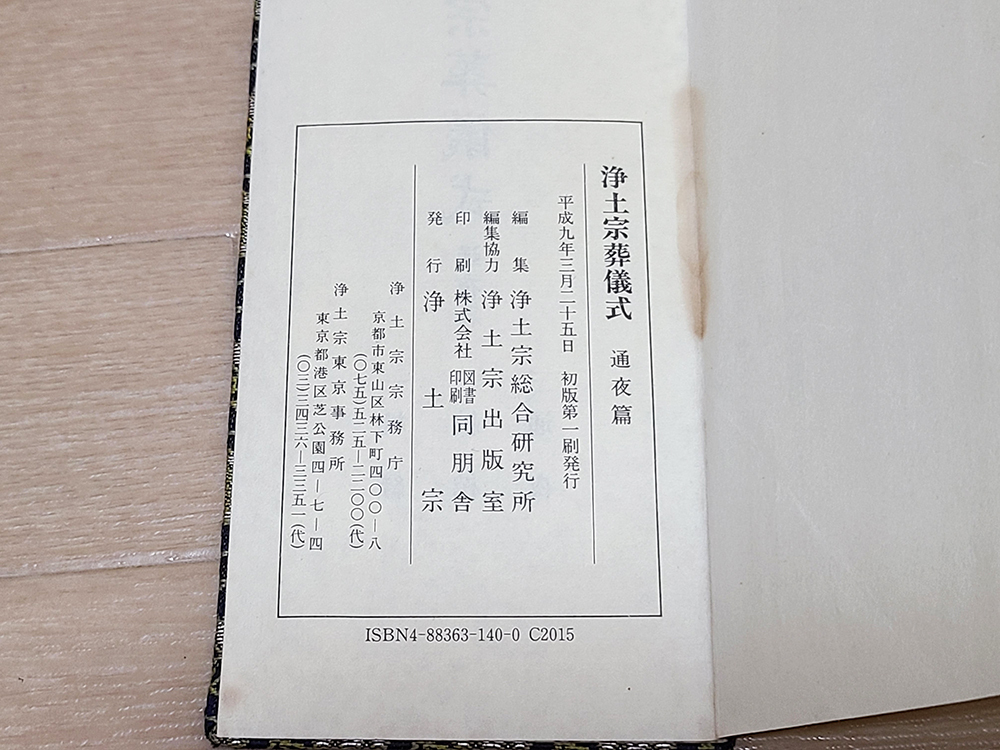 浄土宗葬儀式 通夜篇
平成九年三月二十五日 初版第一刷発行
編集 浄土宗総合研究所
編集協力 浄土宗出版室
印刷 株式会社 図書印刷 同朋舎
発行 浄土宗
浄土宗宗務庁
京都市東山区林下町四〇〇―八
(〇七五)五二五―二二〇〇(代)
浄土宗東京事務所
東京都港区芝公園四―七―四
(〇三)三四三六―三三五一(代)
ISBN4-88363-140-0 C2015